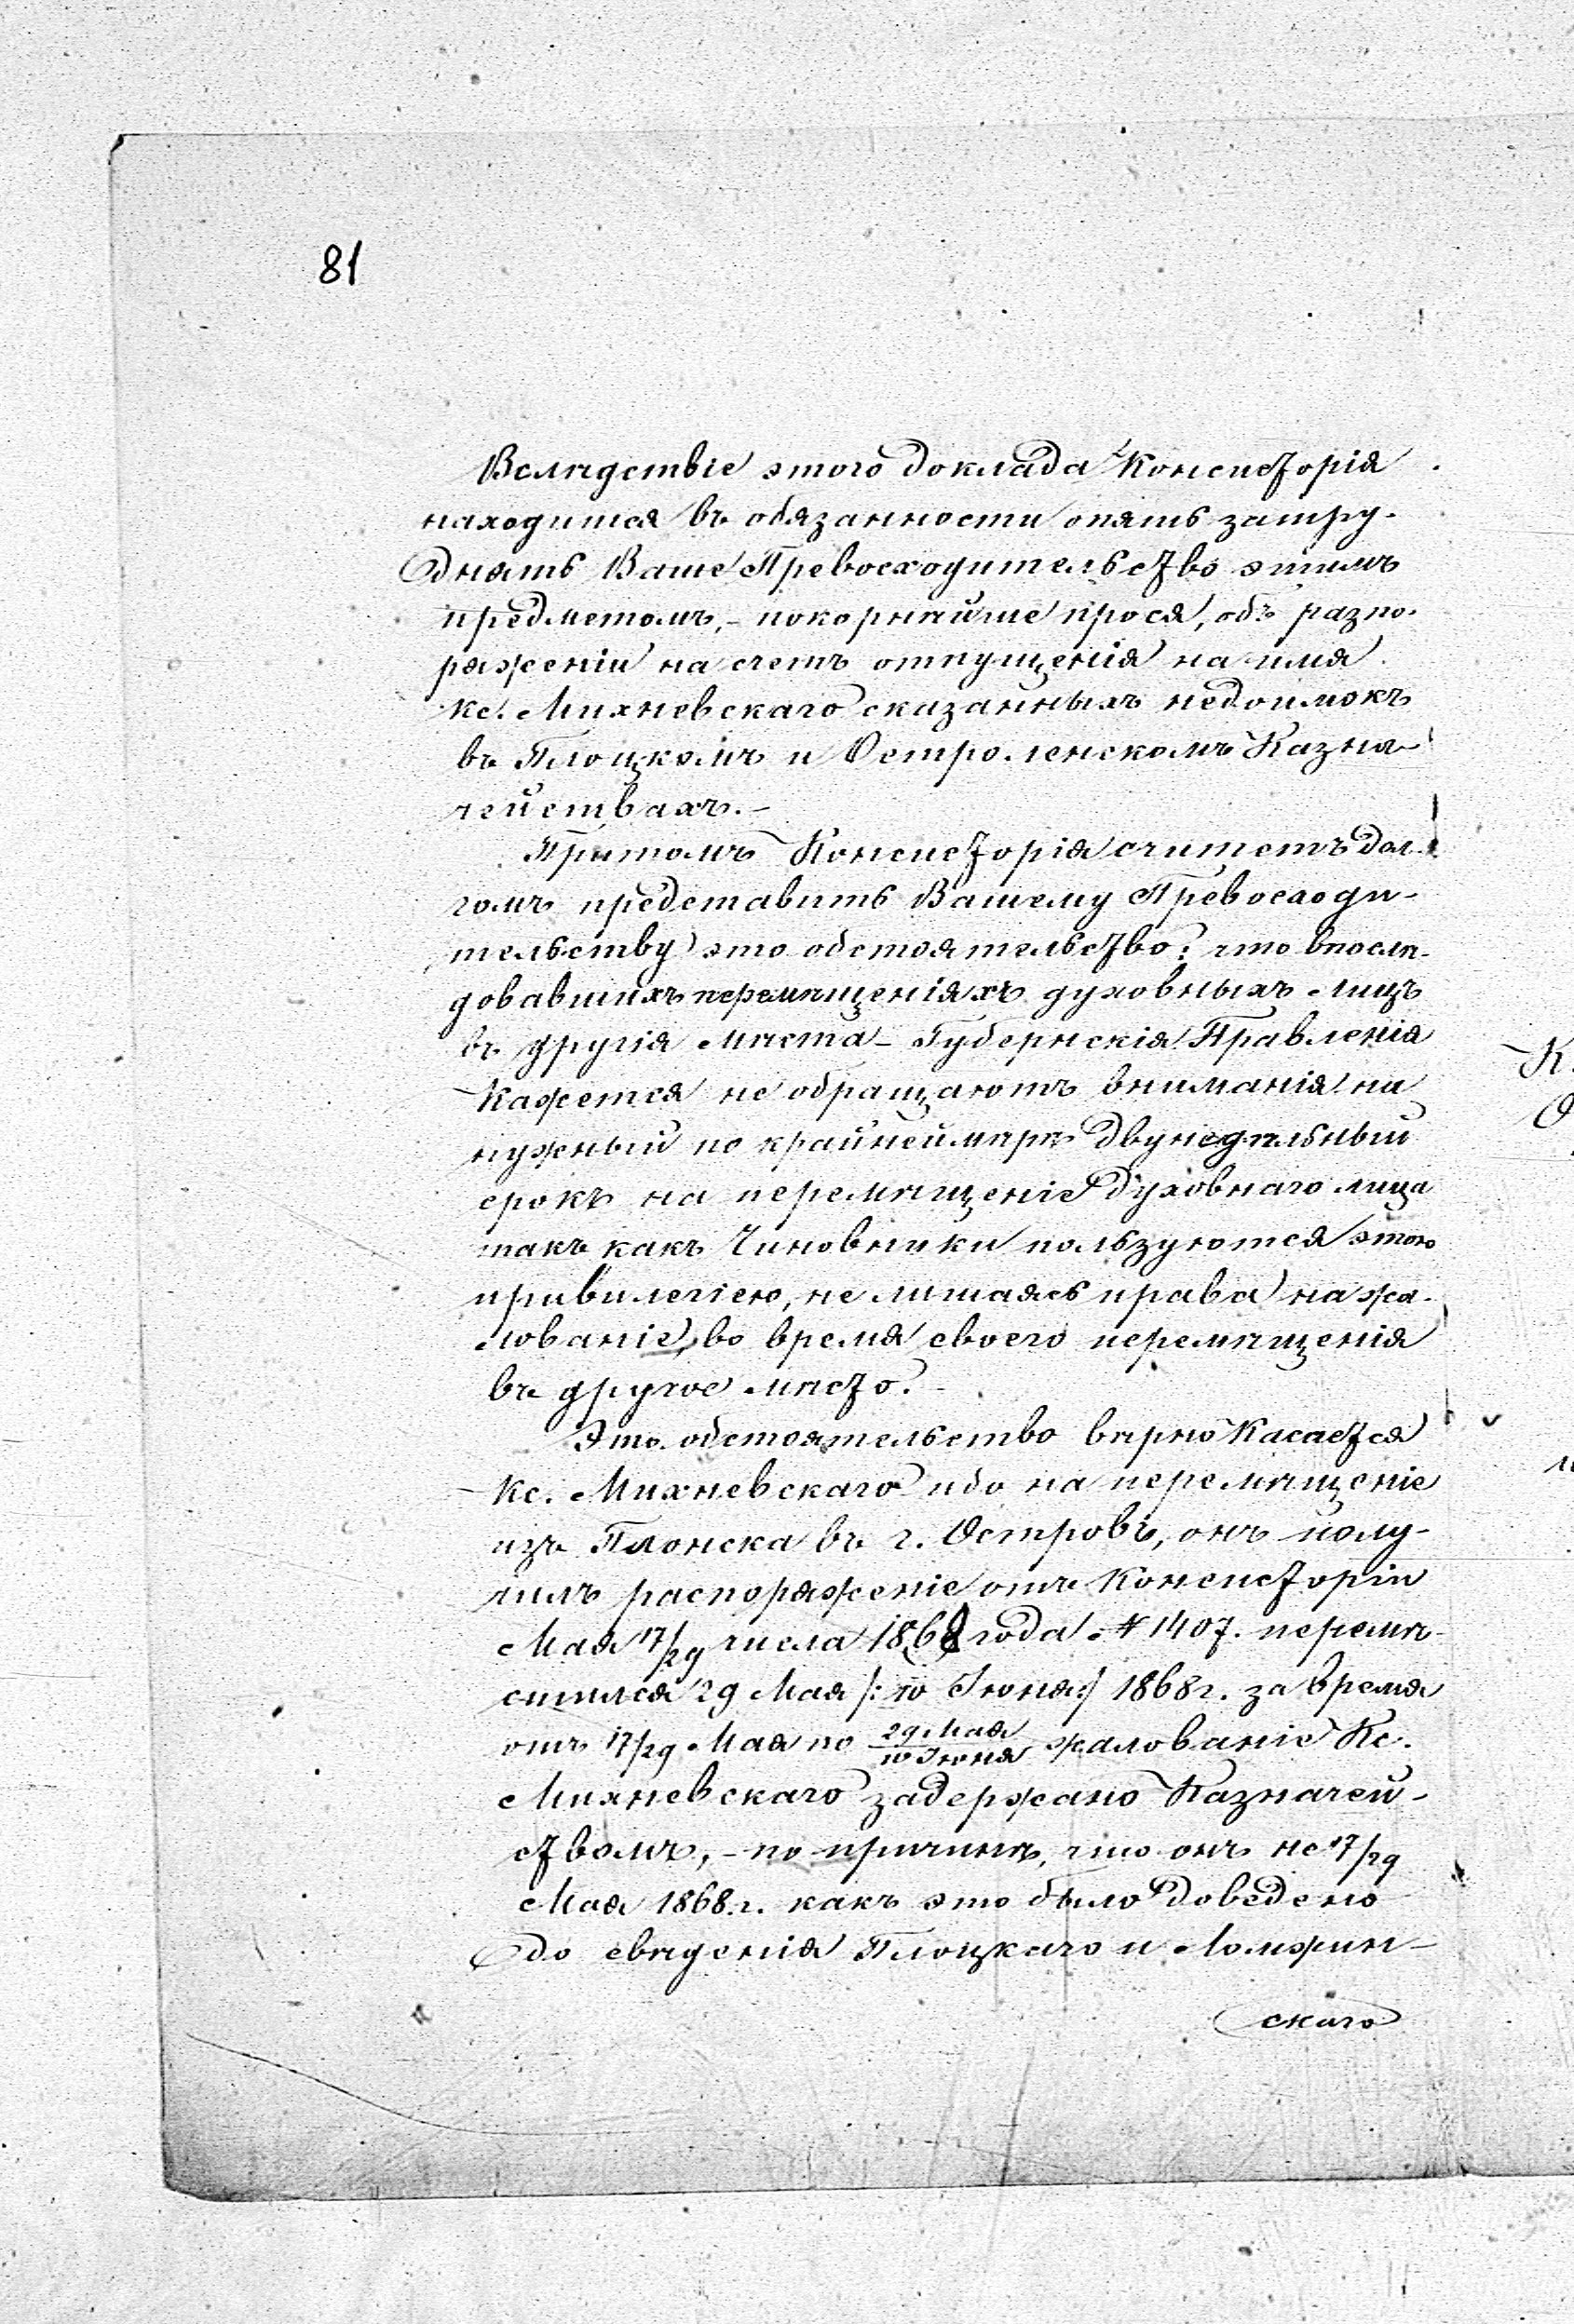 81
Вслѣдствіе этого доклада Консисторія
находится въ обязанности опять затру-
днять Ваше Превосходительство этимъ
предметомъ,- покорнѣйше прося, объ разпо-
ряженіи на счетъ отпущенія на имя
кс. Михневскаго сказанныхъ недоимокъ
въ Плоцкомъ и Остроленскомъ Казна-
чействахъ.-
Притомъ Консисторія считетъ дол-
гомъ представить Вашему Превосходи-
тельству это обстоятельство: что впослѣ-
довавшихъ перемѣщеніяхъ духовныхъ лицъ
въ другія мѣста - Губернскія Правленія
кажется не обращаютъ вниманія на
нужный по крайней мѣрѣ двунедѣльный
срокъ на перемѣщеніе духовнаго лица
такъ какъ Чиновники пользуются этою
привилегіею, не лишаясь права на жа-
лованіе, во время своего перемѣщенія
въ другое мѣсто.-
Это обстоятельство вѣрно касается
Кс. Михневскаго ибо на перемѣщеніе
изъ Плонска въ г. Островъ, онъ полу-
чилъ распоряженіе отъ Консисторіи
Мая 17/29 числа 1868 года № 1407. перемѣ-
стился 29 Мая /: 10 Іюня :/ 1868 г. за время
отъ 17/29 Мая по 29 Мая/10 Іюня жалованіе Кс.
Михневскаго задержано Казначей-
ствомъ,- по причинѣ, что онъ не 17/29
Мая 1868 г. какъ это было доведено
до свѣденія Плоцкаго и Ломжин-
скаго